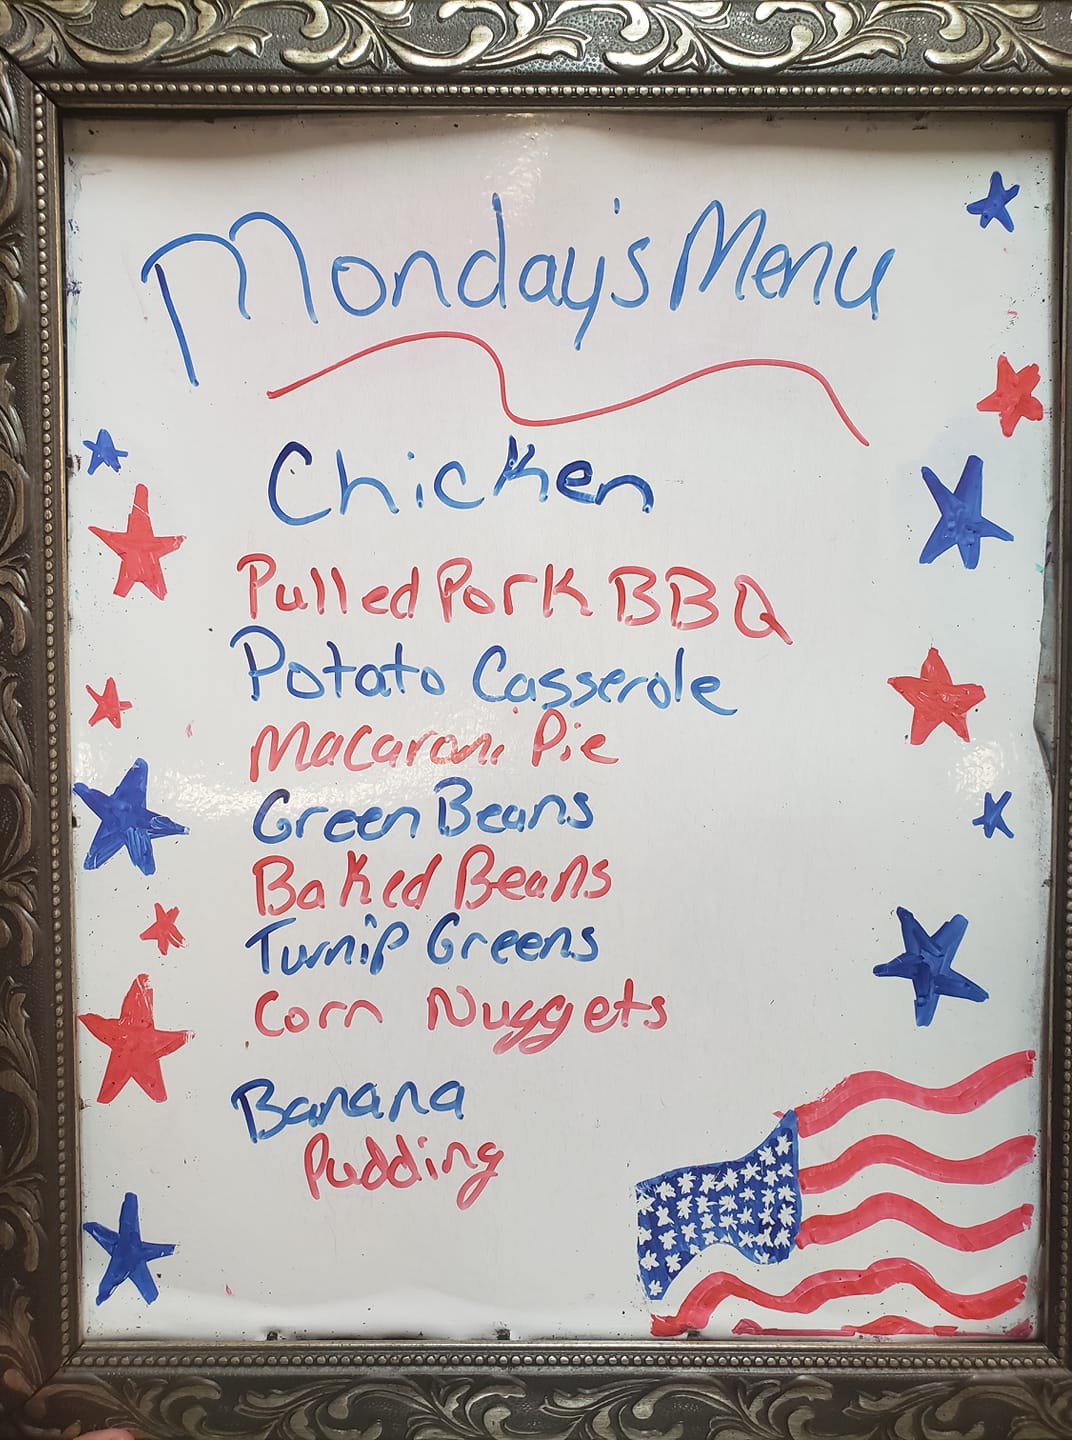 Monday's Menu
Chicken
Pulled Pork BBQ
Potato Casserole
Macaroni Pie
Green Beans
Baked Beans
Turnip Greens
Corn Nuggets
Banana
Pudding